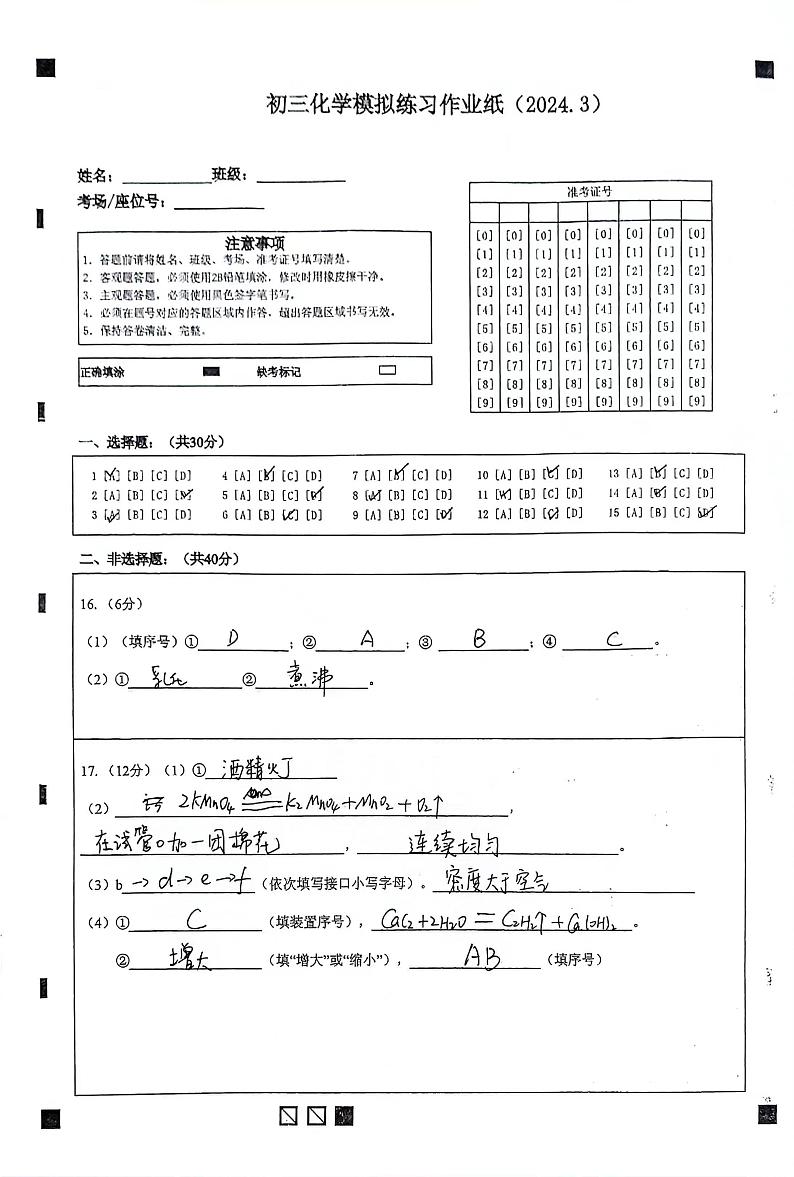 初三化学模拟练习作业纸（2024.3）
姓名：__________班级：__________
考场/座位号：__________
准考证号
[0] [0] [0] [0] [0] [0] [0] [0]
[1] [1] [1] [1] [1] [1] [1] [1]
[2] [2] [2] [2] [2] [2] [2] [2]
[3] [3] [3] [3] [3] [3] [3] [3]
[4] [4] [4] [4] [4] [4] [4] [4]
[5] [5] [5] [5] [5] [5] [5] [5]
[6] [6] [6] [6] [6] [6] [6] [6]
[7] [7] [7] [7] [7] [7] [7] [7]
[8] [8] [8] [8] [8] [8] [8] [8]
[9] [9] [9] [9] [9] [9] [9] [9]
注意事项
1. 答题前请将姓名、班级、考场、准考证号填写清楚。
2. 客观题答题，必须使用2B铅笔填涂，修改时用橡皮擦干净。
3. 主观题答题，必须使用黑色签字笔书写。
4. 必须在题号对应的答题区域内作答，超出答题区域书写无效。
5. 保持答卷清洁、完整。
正确填涂 缺考标记
一、选择题：（共30分）
1 [A] [B] [C] [D] 4 [A] [B] [C] [D] 7 [A] [B] [C] [D] 10 [A] [B] [C] [D] 13 [A] [B] [C] [D]
2 [A] [B] [C] [D] 5 [A] [B] [C] [D] 8 [A] [B] [C] [D] 11 [A] [B] [C] [D] 14 [A] [B] [C] [D]
3 [A] [B] [C] [D] 6 [A] [B] [C] [D] 9 [A] [B] [C] [D] 12 [A] [B] [C] [D] 15 [A] [B] [C] [D]
二、非选择题：（共40分）
16.（6分）
（1）（填序号）① D ；② A ；③ B ；④ C 。
（2）① 乳化 ② 煮沸 。
17.（12分）（1）① 酒精灯
（2） 2KMnO₄ ≜ K₂MnO₄+MnO₂+O₂↑ ，
在试管口加一团棉花 ， 连续均匀 。
（3）b → d → e → f （依次填写接口小写字母）。 密度大于空气
（4）① C （填装置序号）， CaC₂+2H₂O = C₂H₂↑+Ca(OH)₂ 。
② 增大 （填“增大”或“缩小”）， AB （填序号）